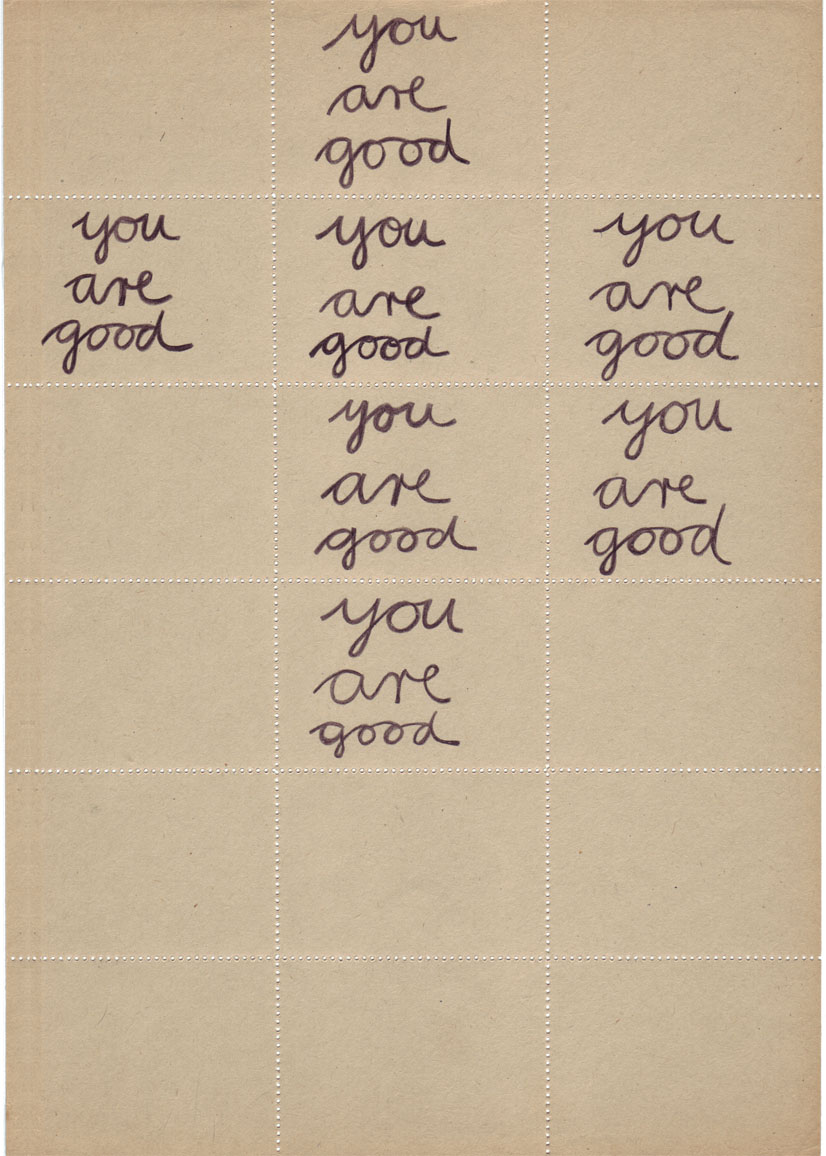 you
are
good
you
are
good
you
are
good
you
are
good
you
are
good
you
are
good
you
are
good